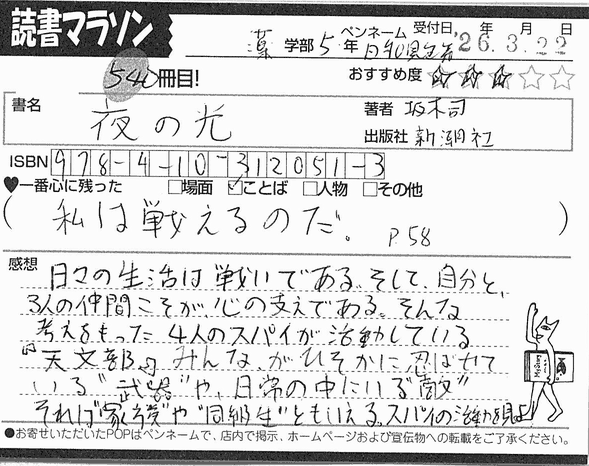 読書マラソン
薬 学部 5 年 ペンネーム 日和見 受付日 '26. 3. 22 年 月 日
540冊目! おすすめ度 ★★★☆☆
書名 夜の光 著者 坂木司
出版社 新潮社
ISBN 978-4-10-312051-3
♥一番心に残った □場面 ☑ことば □人物 □その他
(私は戦えるのだ。 P.58)
感想 日々の生活は戦いである。そして、自分と、
3人の仲間こそが、心の支えである。そんな
考えをもった4人のスパイが活動している
『天文部』みんながひそかに忍ばせて
いる"武器"や、日常の中にいる"敵"
それは"家族"や"同級生"ともいえる。スパイの活動を見よ
●お寄せいただいたPOPはペンネームで、店内で掲示、ホームページおよび宣伝物への転載をご了承ください。